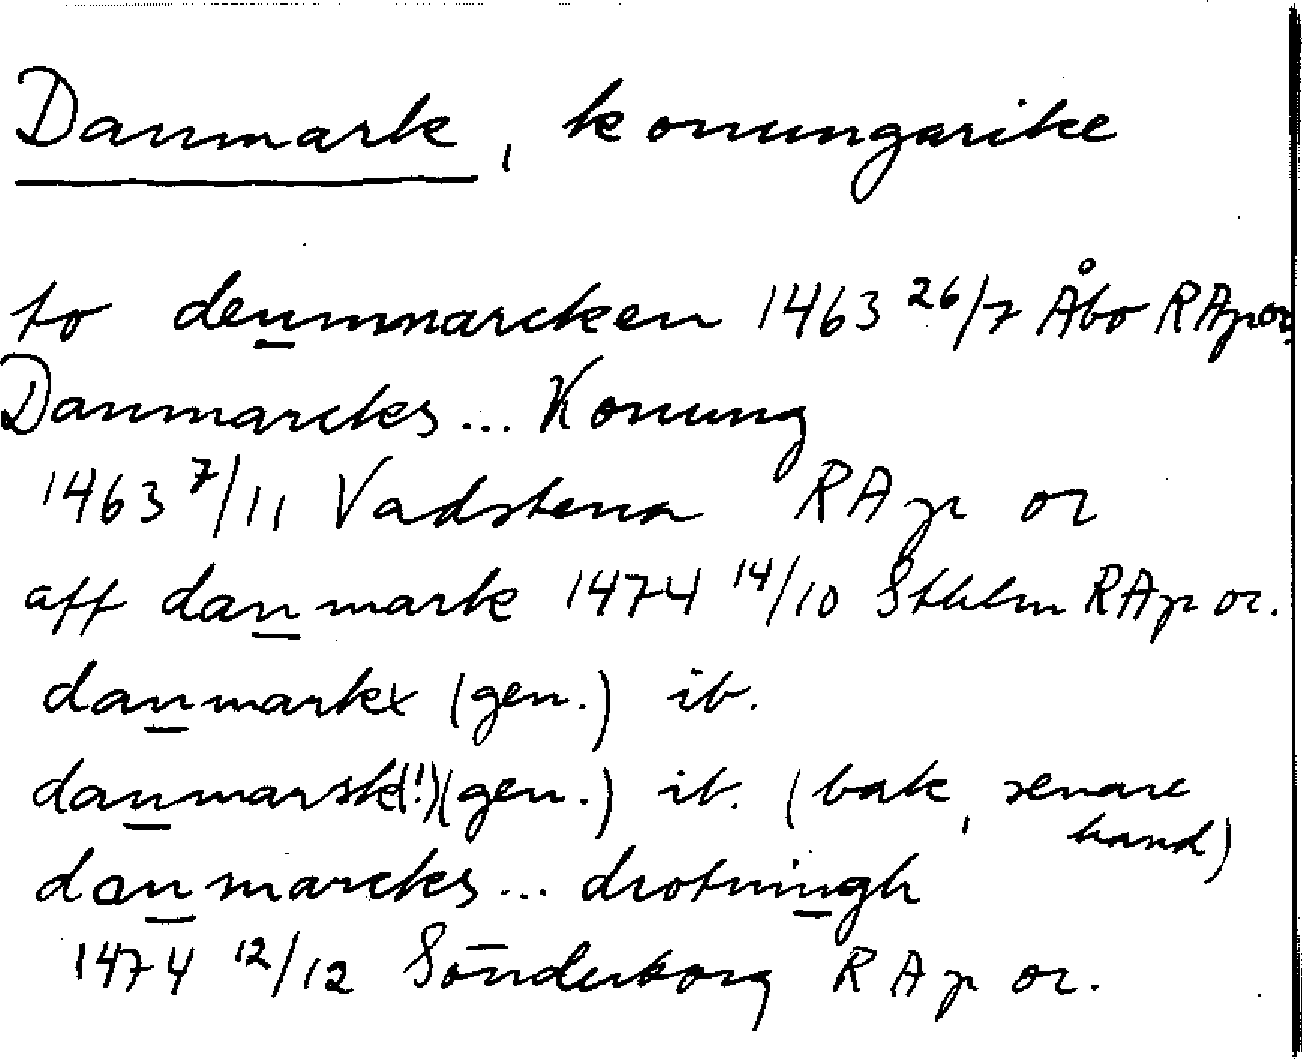 Danmark, konungarike
to denmmarcken 1463 26/7 Åbo RAp or
Danmarcks... Konung
1463 7/11 Vadstena RAp or
aff danmark 1474 14/10 Sthlm RAp or.
danmarkx (gen.) ib.
danmarsk(!) (gen.) ib. (bak, senare
hand)
danmarcks... drotningh
1474 12/12 Sönderborg RAp or.